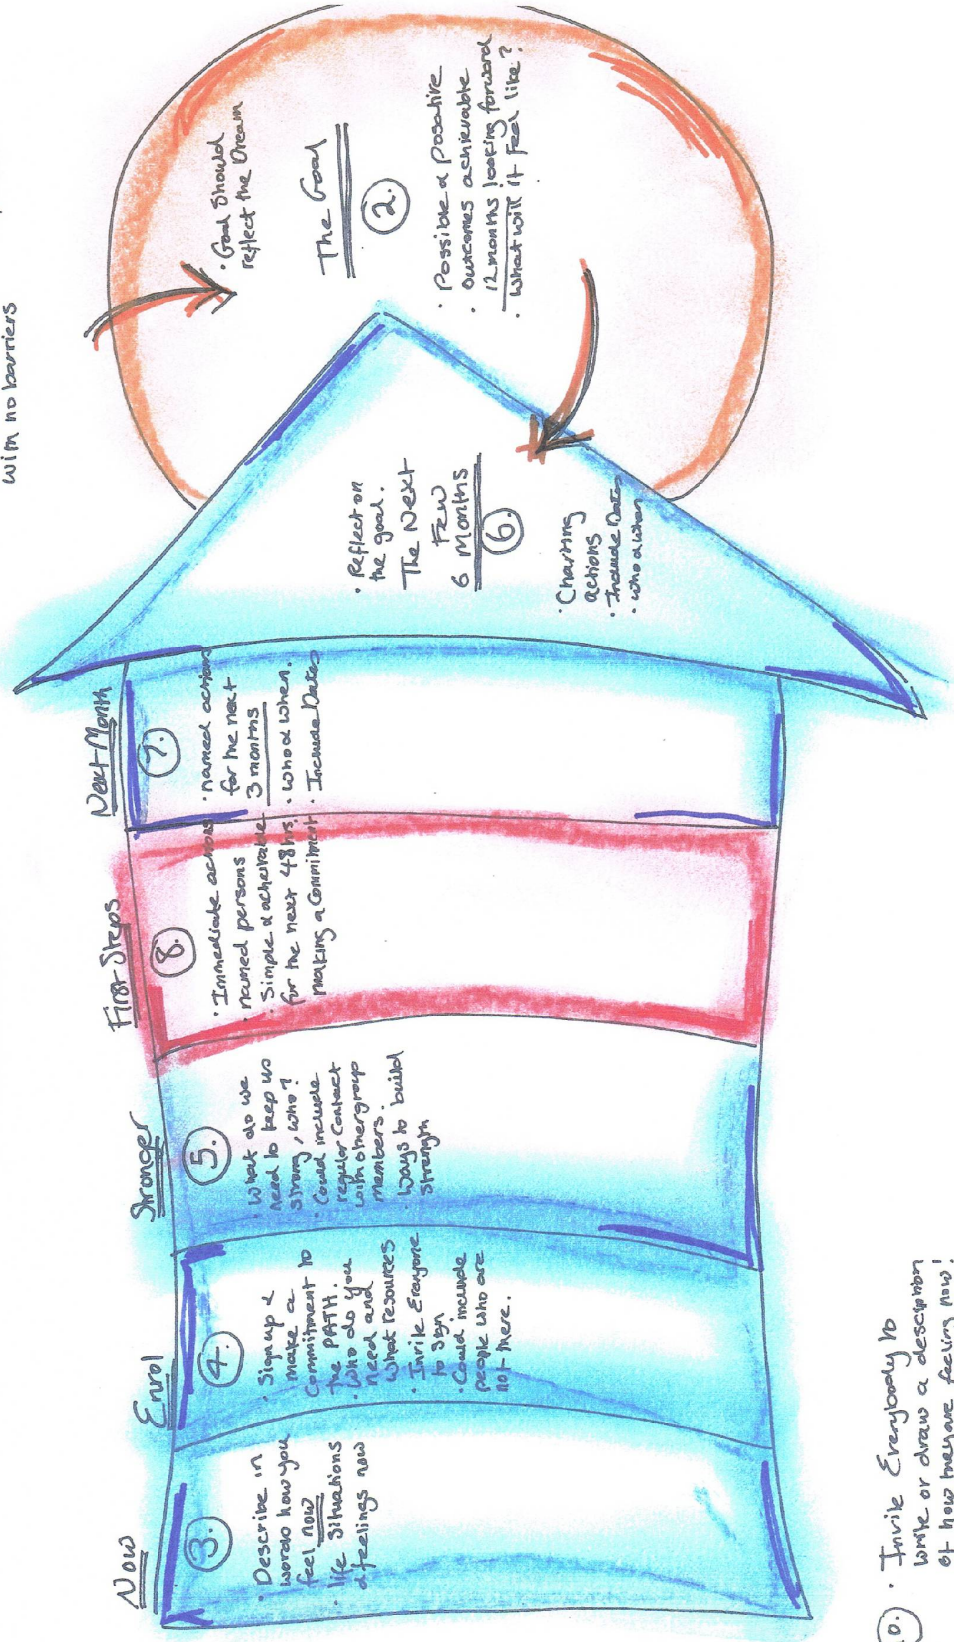 with no barriers
• Goal Should
reflect the Dream
The Goal
2.
• Possible & possative
• outcomes achievable
12 months looking forward
• what will it feel like?
• Reflect on
the goal.
The Next
Few
6 Months
6.
• Charting
actions
• Include Dates
• who & when
Next Month
7.
• named actions
for the next
3 months
• who & when.
• Include Dates
First Steps
8.
• Immediate actions
• named persons
• Simple & acheivable
for the next 48hrs.
making a commitment
Stronger
5.
• What do we
need to keep us
strong, who?
• Could include
regular contact
with other group
members.
• ways to build
strength
Enrol
4.
• Sign up &
make a
commitment to
the PATH.
• Who do you
need and
what resources
• Invite Everyone
to sign
• Could include
people who are
not there.
Now
3.
• Describe in
words how you
feel now
• life situations
& feelings now
0.
• Invite Everybody to
write or draw a description
of how they are feeling now!